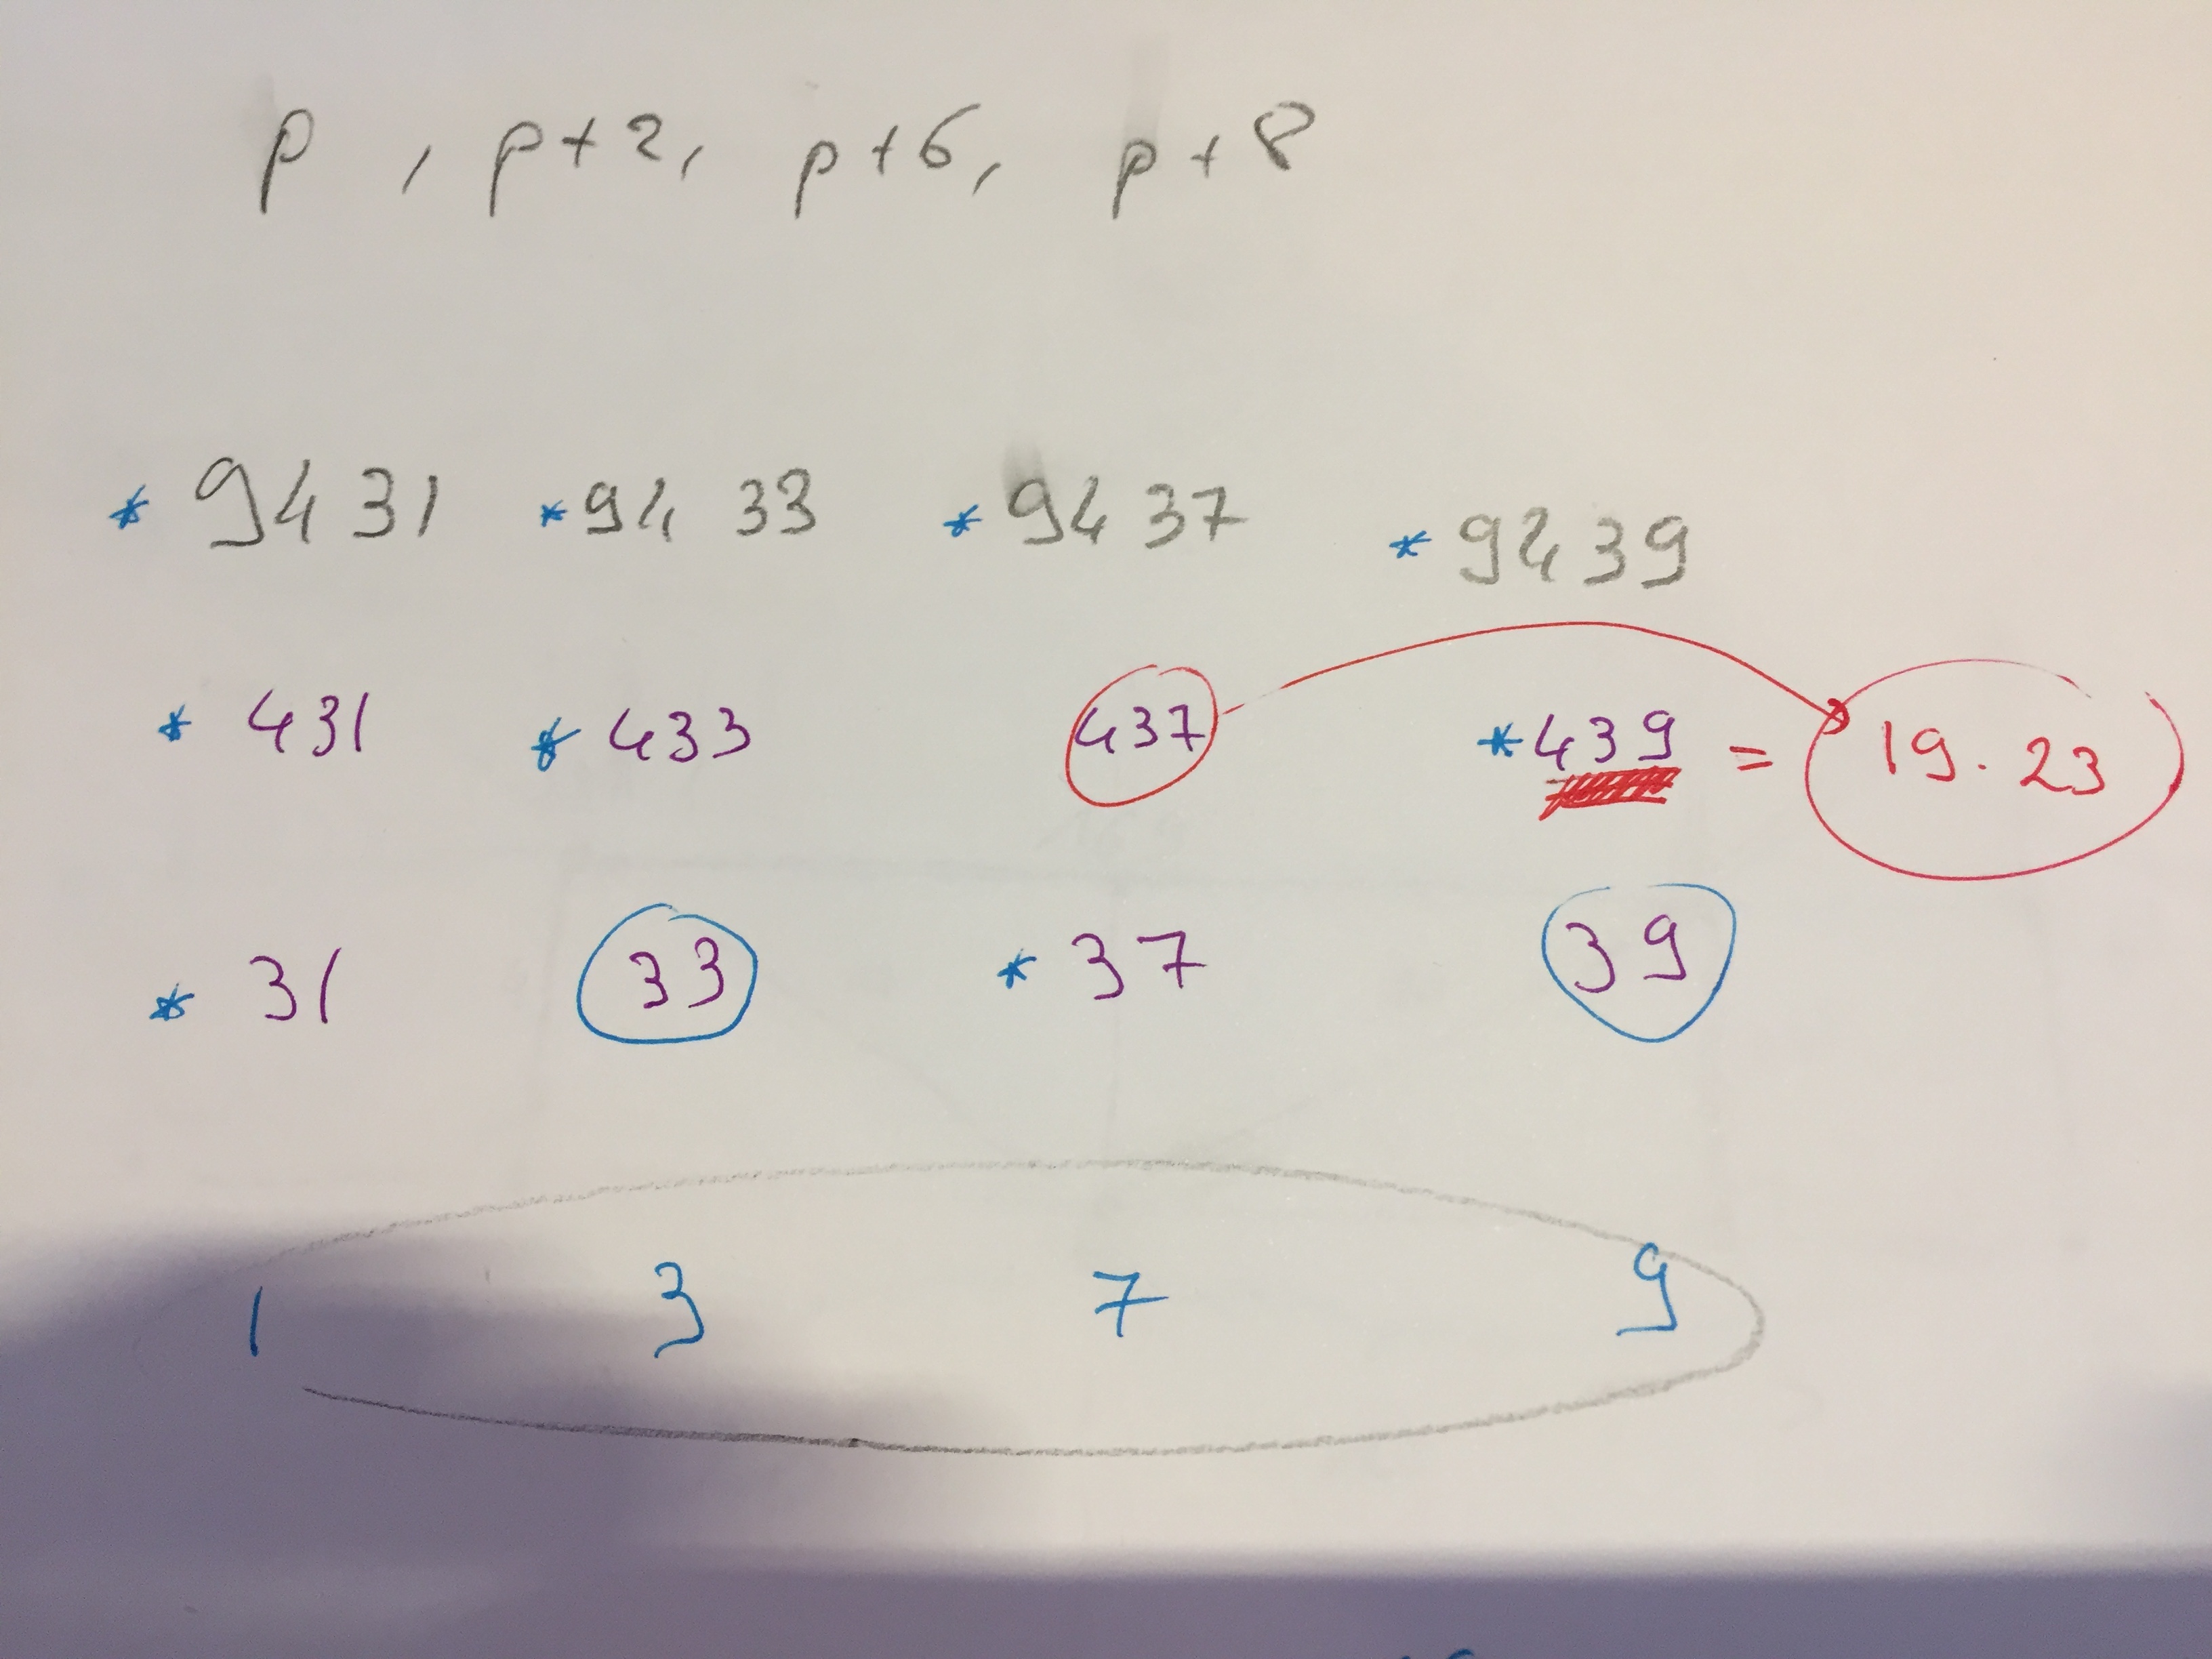 p, p+2, p+6, p+8
* 9431 * 9433 * 9437 * 9439
* 431 * 433 437 * 439 = 19.23
* 31 33 * 37 39
1 3 7 9